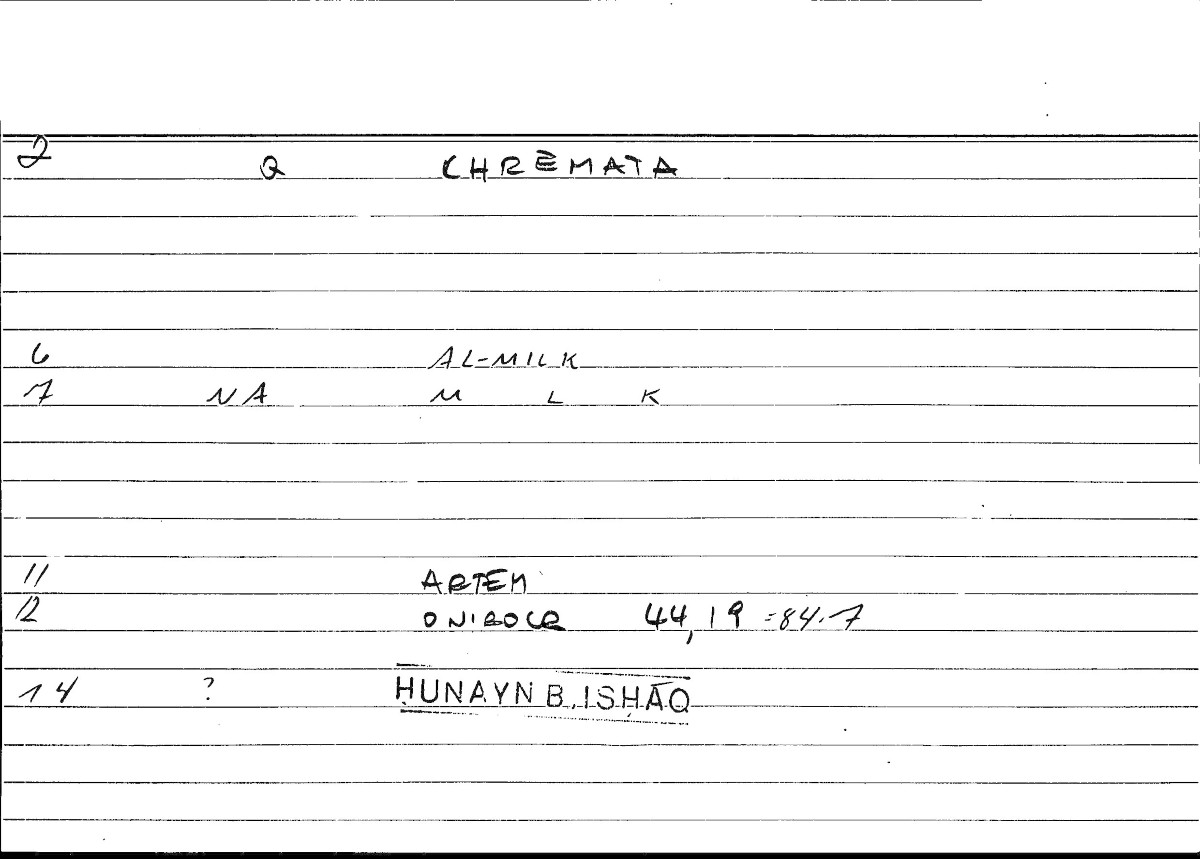 2 Q CHRĒMATA
6 AL-MILK
7 NA M L K
11 ARTEM
12 ONIROCR 44,19 =84.7
14 ? ḤUNAYN B. ISḤĀQ